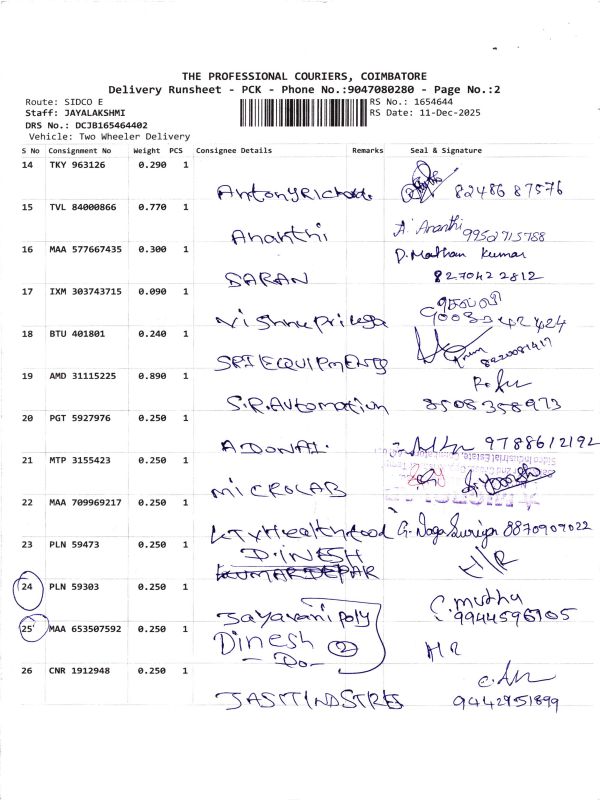 THE PROFESSIONAL COURIERS, COIMBATORE
Delivery Runsheet - PCK - Phone No.:9047080280 - Page No.:2
Route: SIDCO E
RS No.: 1654644
Staff: JAYALAKSHMI
RS Date: 11-Dec-2025
DRS No.: DCJB165464402
Vehicle: Two Wheeler Delivery
S No Consignment No Weight PCS Consignee Details Remarks Seal & Signature
14 TKY 963126 0.290 1
82486 87576
15 TVL 84000866 0.770 1
Ananthi A. Ananthi
9952715788
16 MAA 577667435 0.300 1 D. Mathan Kumar
SARAN 827042 2812
17 IXM 303743715 0.090 1
Vishnu Priya 90033 42424
18 BTU 401801 0.240 1
SRI EQUIPMENTS 8220081417
19 AMD 31115225 0.890 1
S.R.Automation 8508358973
20 PGT 5927976 0.250 1
ADONAI 9788612192
21 MTP 3155423 0.250 1
MICROLAB
22 MAA 709969217 0.250 1
Healthfood G. Naga Suriya 8870909022
23 PLN 59473 0.250 1
DINESH H/R
24 PLN 59303 0.250 1
C. Muthu
Jayavani poly 9944596905
25 MAA 653507592 0.250 1
Dinesh 2 HR
- Do -
26 CNR 1912948 0.250 1
9442951899